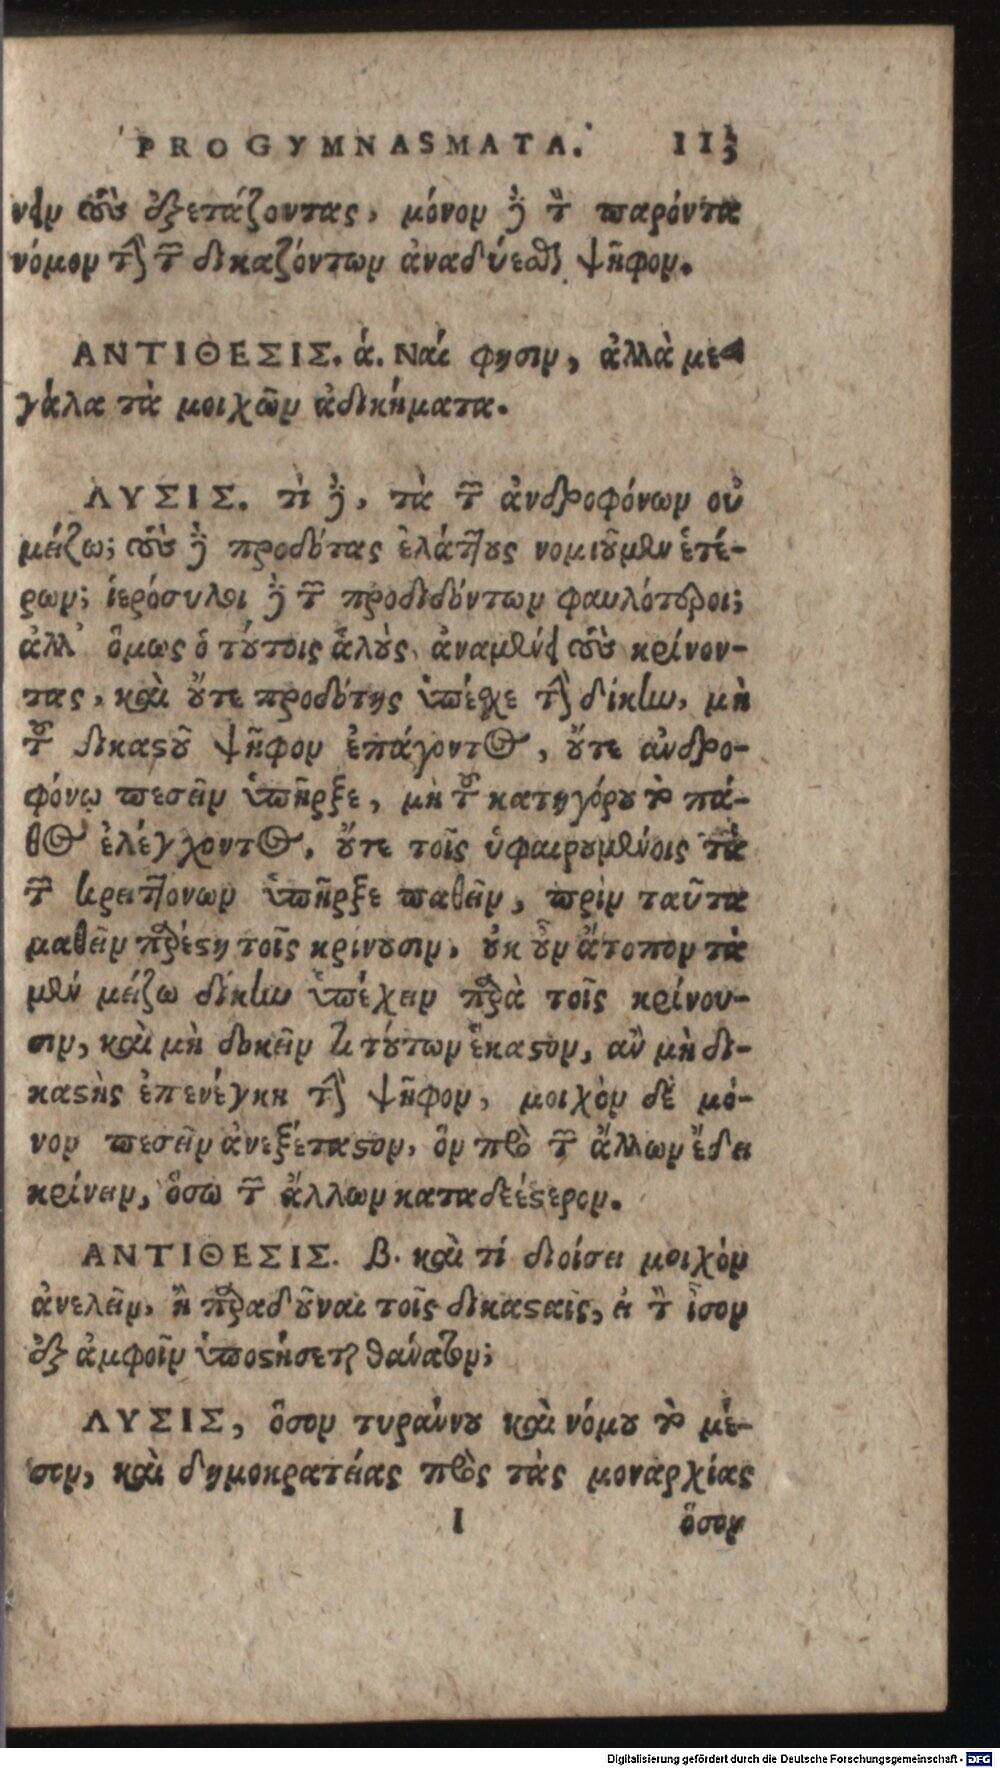 PROGYMNASMATA. 113
νειν τοὺς ἐξετάζοντας, μόνον δὲ τὸν παρόντα
νόμον τὴν τῶν δικαζόντων ἀναδύεσθαι ψῆφον.
ΑΝΤΙΘΕΣΙΣ. ά. Ναί φησιν, ἀλλὰ με-
γάλα τὰ μοιχῶν ἀδικήματα.
ΛΥΣΙΣ. τὶ δὲ, τὰ τῶν ἀνδροφόνων οὐ
μείζω; τοὺς δὲ προδότας ἐλάττους νομιοῦμεν ἑτέ-
ρων; ἱερόσυλοι δὲ τῶν προδιδόντων φαυλότεροι;
ἀλλ' ὅμως ὁ τούτοις ἁλοὺς ἀναμένει τοὺς κρίνον-
τας, καὶ οὔτε προδότης ὑπέσχε τὴν δίκην, μὴ
τοῦ δικαστοῦ ψῆφον ἐπάγοντος, οὔτε ἀνδρο-
φόνῳ πεσεῖν ὑπῆρξε, μὴ τοῦ κατηγόρου τὸ πά-
θος ἐλέγχοντος, οὔτε τοῖς ὑφαιρουμένοις τὰ
τῶν κρειττόνων ὑπῆρξε παθεῖν, πρὶν ταῦτα
μαθεῖν παρέστη τοῖς κρίνουσιν, οὐκ οὖν ἄτοπον τὰ
μὲν μείζω δίκην ὑπέχειν παρὰ τοῖς κρίνου-
σιν, καὶ μὴ δοκεῖν κ τούτων ἕκαστον, ἂν μὴ δι-
καστὴς ἐπενέγκῃ τὴν ψῆφον, μοιχὸν δὲ μό-
νον πεσεῖν ἀνεξέταστον, ὃν πρὸ τῶν ἄλλων ἔδει
κρίνειν, ὅσω τῶν ἄλλων καταδεέστερον.
ΑΝΤΙΘΕΣΙΣ. β. καὶ τί διοίσει μοιχὸν
ἀνελεῖν, ἢ παραδοῦναι τοῖς δικασταῖς, εἰ τὸν ἶσον
ἐξ ἀμφοῖν ὑποστήσεται θάνατον;
ΛΥΣΙΣ, ὅσον τυράννου καὶ νόμου τὸ μέ-
σον, καὶ δημοκρατείας πρὸς τὰς μοναρχίας
I ὅσον
Digitalisierung gefördert durch die Deutsche Forschungsgemeinschaft - DFG